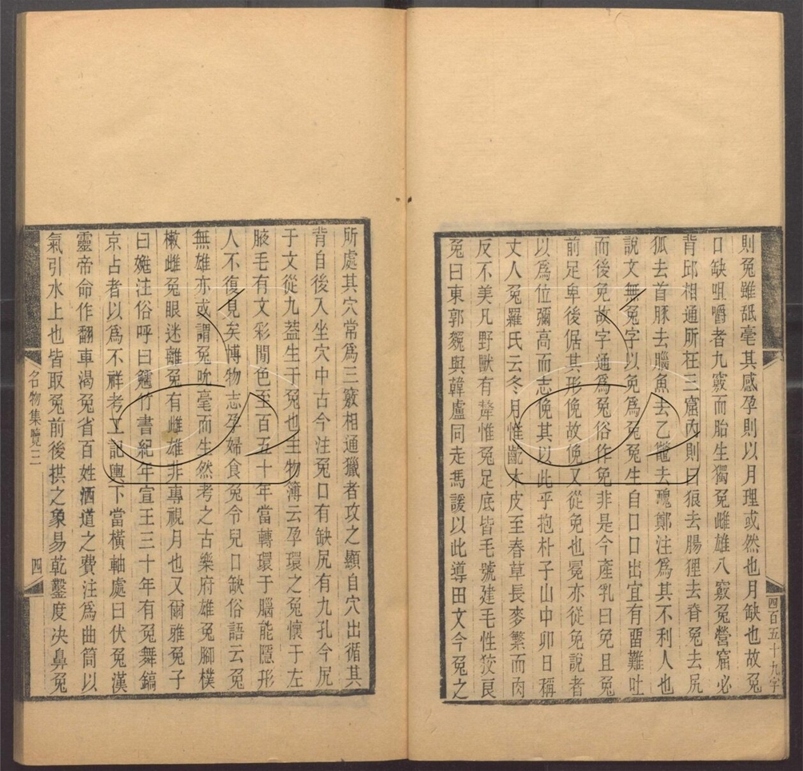 則兔雖舐毫其感孕則以月理或然也月缺也故兔
口缺咀嚼者九竅而胎生獨兔雌雄八竅兔營窟必
背邱相通所在三窟內則曰狼去腸貍去脊兔去尻
狐去首豚去腦魚去乙鼈去醜鄭注為其不利人也
說文無免字以免為兔兔生自口口出宜有畱難吐
而後免故字通為兔俗作免非是今產乳曰免且兔
前足卑後倨其形俛故俛又從免也冕亦從免說者
以為位彌高而志俛其以此乎抱朴子山中卯日稱
丈人兔羅氏云冬月惟齕木皮至春草長麥繁而肉
反不美凡野獸有犛惟兔足底皆毛號建毛性狡㒫
兔曰東郭㕙與韓盧同走馮諼以此導田文今兔之
四百五十九字
所處其穴常為三竅相通獵者攻之顯自穴出循其
背自後入坐穴中古今注兔口有缺尻有九孔今尻
于文從九蓋生于兔也主物簿云孕環之兔懷于左
腋毛有文彩閒色至百五十年當轉環于腦能隱形
人不復見矣博物志孕婦食兔令兒口缺俗語云兔
無雄亦或謂兔吮毫而生然考之古樂府雄兔腳樸
樕雌兔眼迷離兔有雌雄非專視月也又爾雅兔子
曰嬎注俗呼曰䨲竹書紀年宣王三十年有兔舞鎬
京占者以為不祥考工記輿下當橫軸處曰伏兔漢
靈帝命作翻車渴兔省百姓洒道之費注為曲筒以
氣引水上也皆取兔前後拱之象易乾鑿度决鼻兔
名物集覽三
四